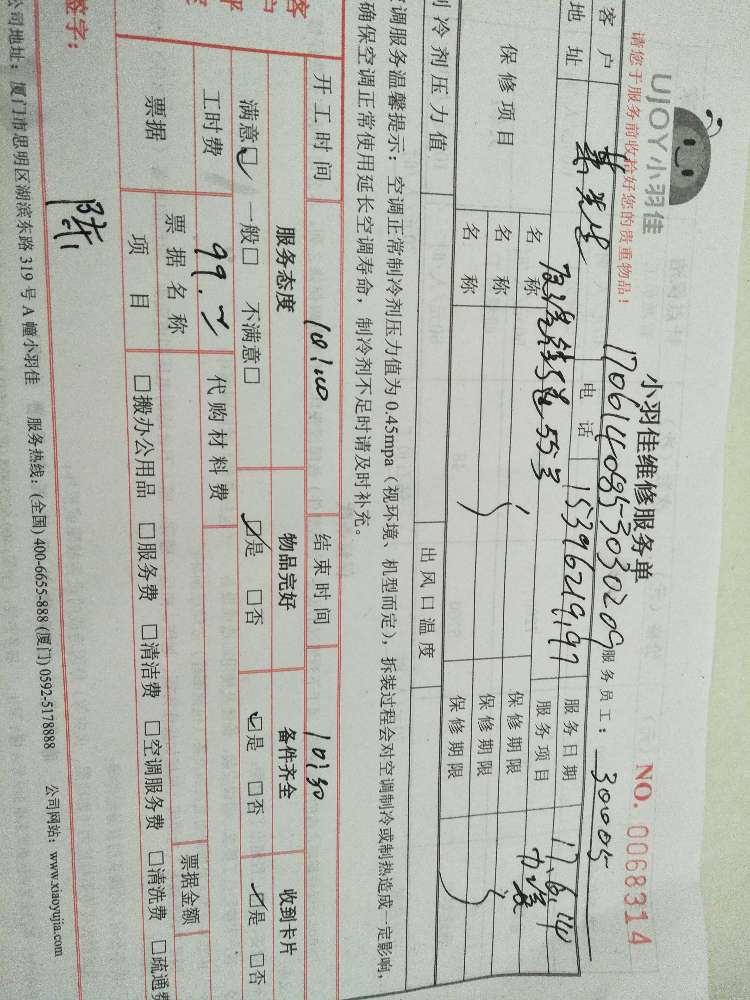 UJOY小羽佳
小羽佳维修服务单
NO. 0068314
请您于服务前收拾好您的贵重物品！
1706140853030209
服务员工： 30005
客户
电话
15396219197
服务日期
17.6.14
地址
55号
服务项目
保修项目
名称
保修期限
名称
保修期限
名称
保修期限
制冷剂压力值
出风口温度
空调服务温馨提示：空调正常制冷剂压力值为0.45mpa（视环境、机型而定），拆装过程会对空调制冷或制热造成一定影响，
确保空调正常使用延长空调寿命，制冷剂不足时请及时补充。
开工时间
10:00
结束时间
10:30
服务态度
物品完好
备件齐全
收到卡片
满意☑ 一般□ 不满意□
☑是 □否
☑是 □否
☑是 □否
工时费
99.
代购材料费
票据
票据名称
票据金额
项目
□搬办公用品 □服务费 □清洁费 □空调服务费 □清洗费 □疏通费
签字：
公司地址：厦门市思明区湖滨东路319号A幢小羽佳 服务热线：(全国) 400-6655-888 (厦门) 0592-5178888 公司网站：www.xiaoyujia.com